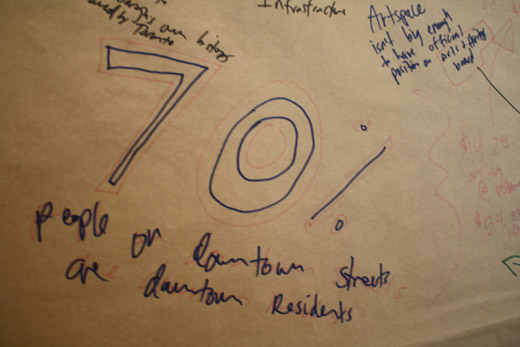 own history
by Toronto
Infrastructure
Artspace
isn't big enough
to have official
position on arts &
board
70%
people on downtown streets
are downtown Residents